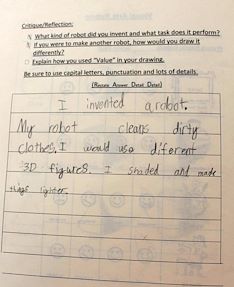 Critique/Reflection:
What kind of robot did you invent and what task does it perform?
If you were to make another robot, how would you draw it
differently?
Explain how you used "Value" in your drawing.
Be sure to use capital letters, punctuation and lots of details.
(Restate Answer Detail Detail)
I invented a robot.
My robot cleans dirty
clothes. I would use diferent
3D figures. I shaded and made
things lighter.